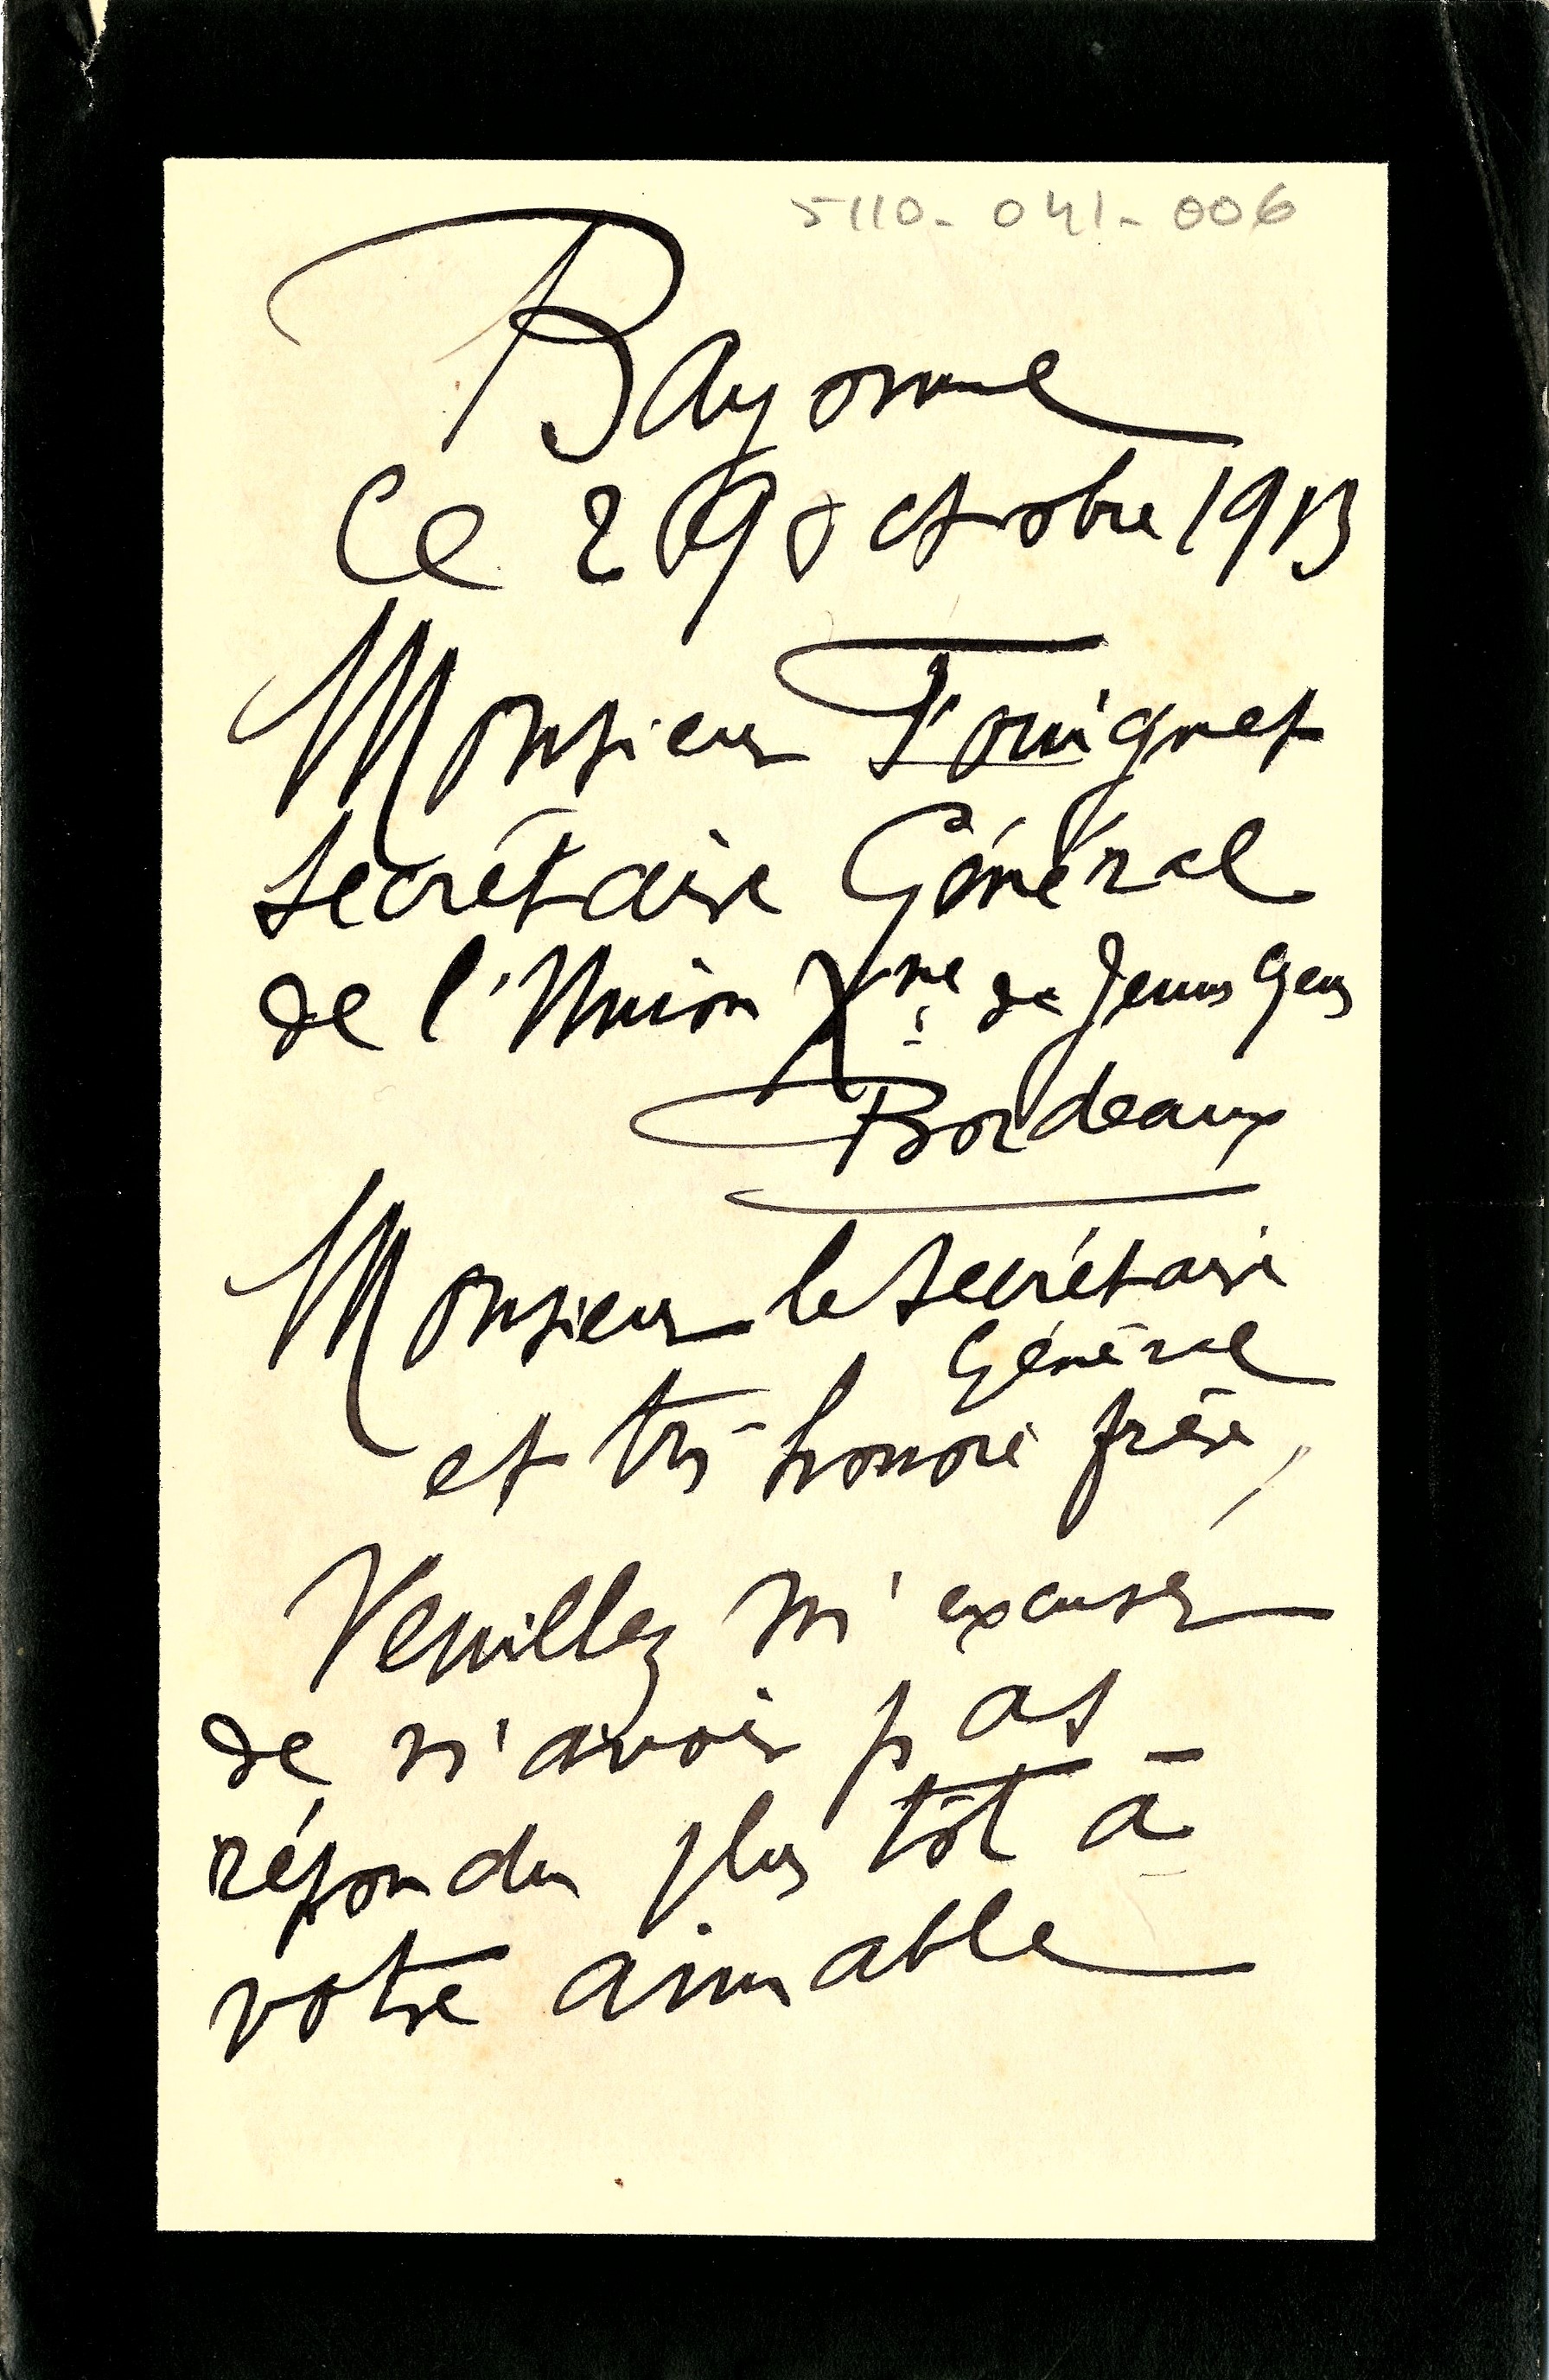 5110-041-006
Bayonne
Ce 29 octobre 1913
Monsieur
Secrétaire Général
de l'Union Xne de Jeunes Gens
Bordeaux
Monsieur le Secrétaire
Général
et très honoré frère,
Veuillez m'excuser
de n'avoir pas
répondu plus tôt à
votre aimable